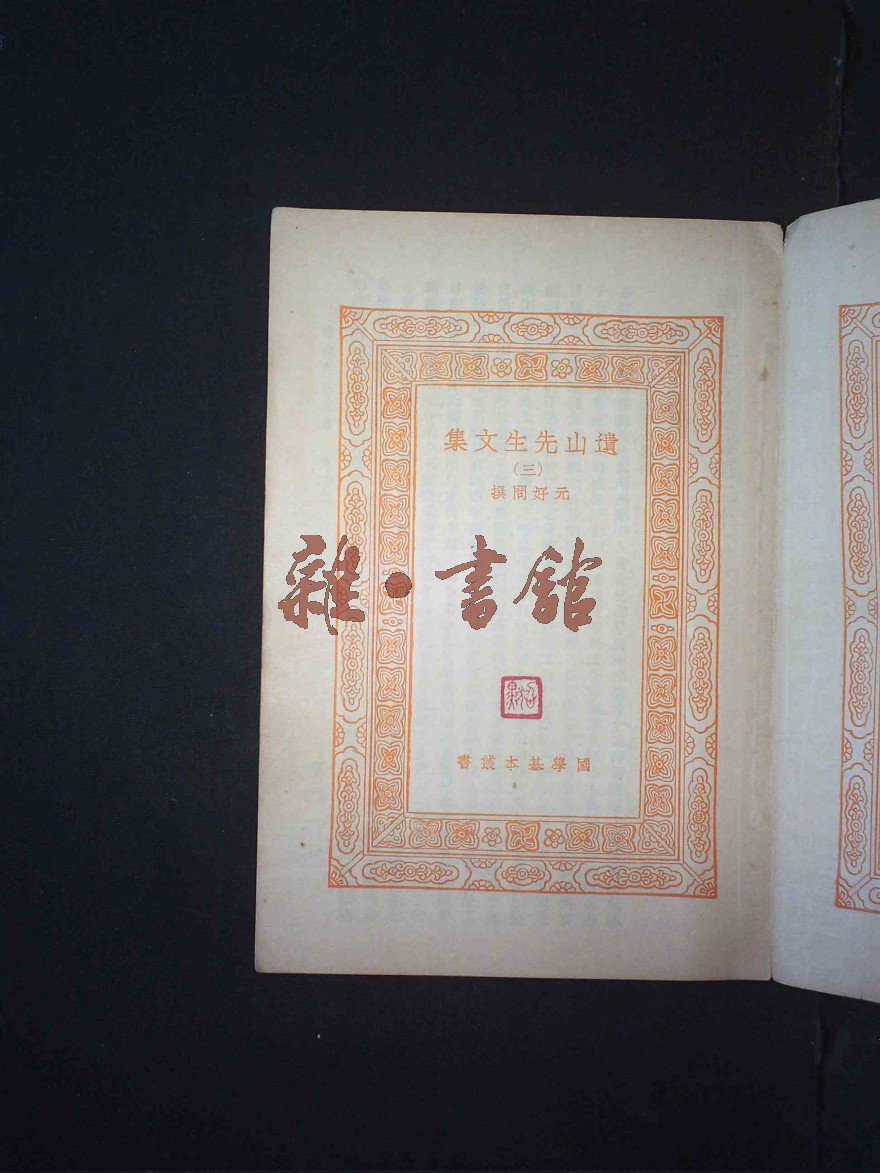 遺山先生文集
(三)
元好問撰
雜·書館
國學基本叢書